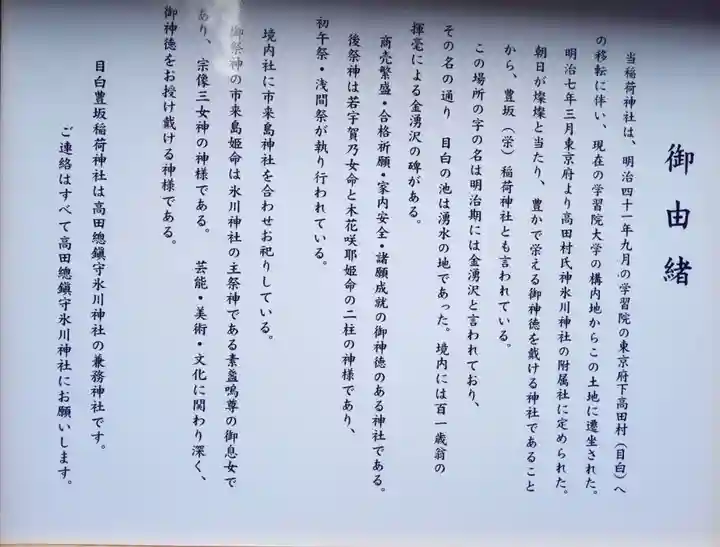 御由緒
当稲荷神社は、明治四十一年九月の学習院の東京府下高田村(目白)へ
の移転に伴い、現在の学習院大学の構内地からこの土地に遷坐された。
明治七年三月東京府より高田村氏神氷川神社の附属社に定められた。
朝日が燦燦と当たり、豊かで栄える御神徳を戴ける神社であること
から、豊坂(栄)稲荷神社とも言われている。
この場所の字の名は明治期には金湧沢と言われており、
その名の通り 目白の池は湧水の地であった。境内には百一歳翁の
揮毫による金湧沢の碑がある。
商売繁盛・合格祈願・家内安全・諸願成就の御神徳のある神社である。
後祭神は若宇賀乃女命と木花咲耶姫命の二柱の神様であり、
初午祭・浅間祭が執り行われている。
境内社に市来島神社を合わせお祀りしている。
御祭神の市来島姫命は氷川神社の主祭神である素盞嗚尊の御息女で
あり、宗像三女神の神様である。 芸能・美術・文化に関わり深く、
御神徳をお授け戴ける神様である。
目白豊坂稲荷神社は高田總鎮守氷川神社の兼務神社です。
ご連絡はすべて高田總鎮守氷川神社にお願いします。